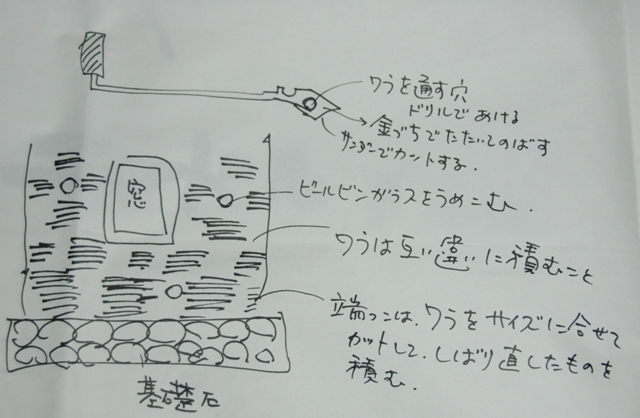 ワラを通す穴
ドリルであける
金づちでたたいてのばす
サンダーでカットする.
窓
ビールビンガラスをうめこむ.
ワラは互い違いに積むこと
端っこは、ワラをサイズに合せて
カットして、しばり直したものを
積む.
基礎石